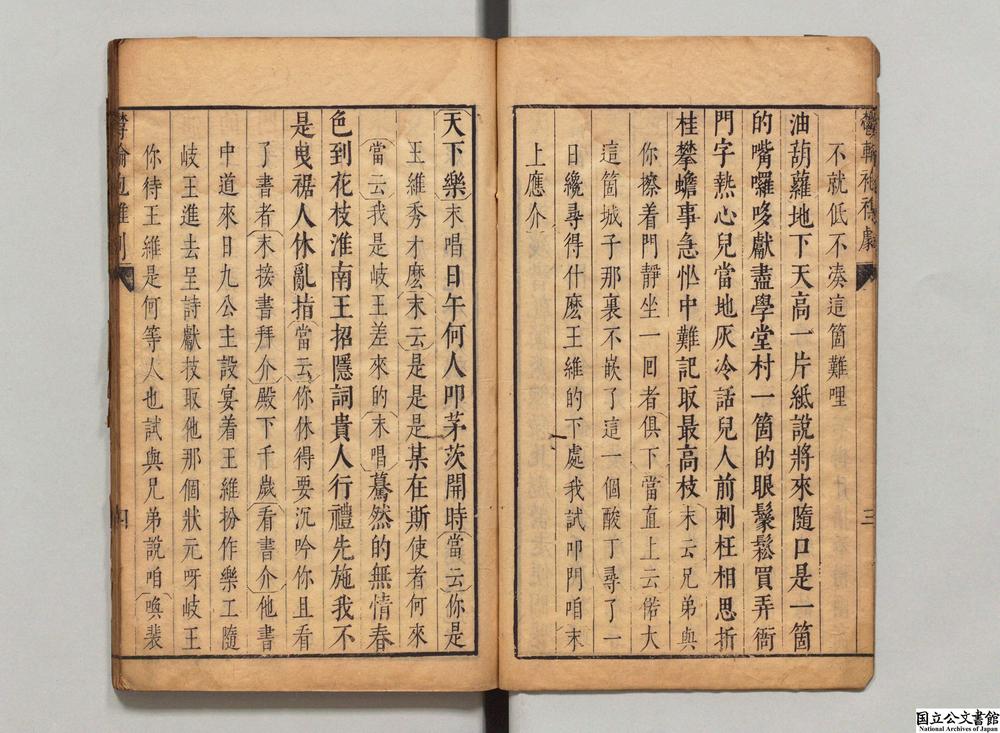 不就低不湊這箇難哩
油葫蘆地下天高一片紙說將來隨口是一箇
的嘴囉哆獻盡學堂村一箇的眼鬆鬆買弄衙
門字熱心兒當地灰冷話兒人前刺枉相思折
桂攀蟾事急忙中難記取最高枝末云兄弟與
你擦着門靜坐一回者俱下當直上云偌大
這箇城子那裏不嵌了這一個酸丁尋了一
日纔尋得什麽王維的下處我試叩門咱末
上應介
三
天下樂末唱日午何人叩茅茨開時當云你是
王維秀才麽末云是是是某在斯使者何來
當云我是岐王差來的末唱驀然的無情春
色到花枝淮南王招隱詞貴人行禮先施我不
是曳裾人休亂指當云你休得要沉吟你且看
了書者末接書拜介殿下千歲看書介他書
中道來日九公主設宴着王維扮作樂工隨
岐王進去呈詩獻技取他那個狀元呀岐王
你待王維是何等人也試與兄弟說咱喚裴
四
国立公文書館
National Archives of Japan